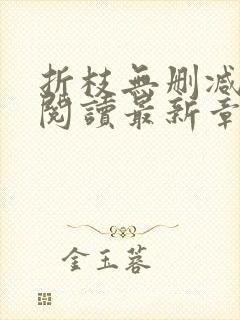 折枝無刪减
閱讀最新章
金玉蓉